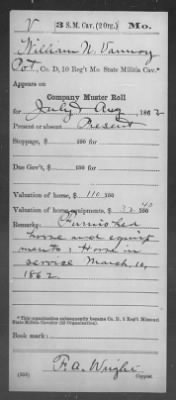 V 3 S.M. Cav. (2 Org.) Mo.
William N. Vannoy
Pvt, Co. D, 10 Reg't Mo. State Militia Cav.*
Appears on
Company Muster Roll
for July & Aug, 1862
Present or absent Present
Stoppage, $ 100 for
Due Gov't, $ 100 for
Valuation of horse, $ 110 100
Valuation of horse equipments, $ 32 40 100
Remarks: Furnished
horse and equip
ments; Horse in
service March 10,
1862.
*This organization subsequently became Co. D, 3 Reg't Missouri
State Militia Cavalry (2d Organization).
Book mark:
F. A. Wright
(358) Copyist